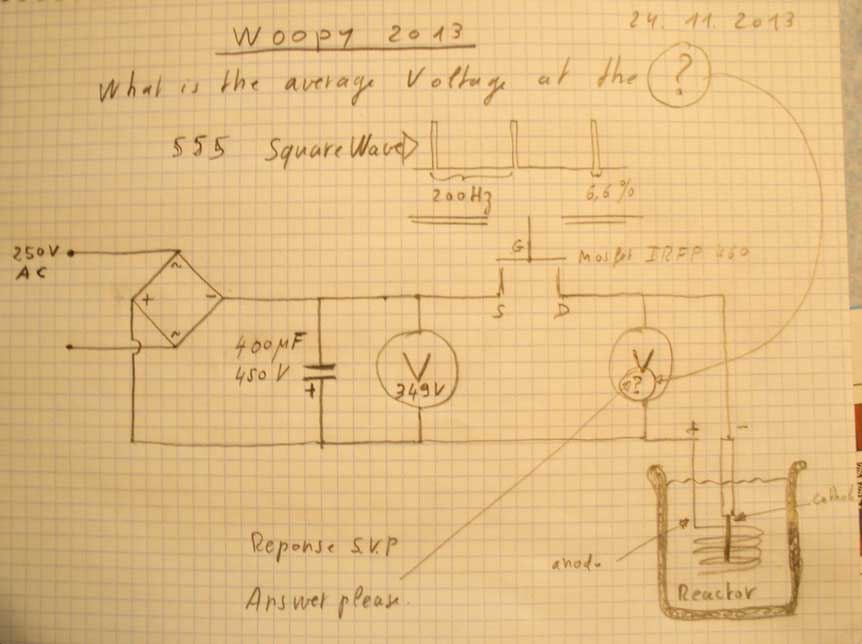 24. 11. 2013
Woopy 2013
What is the average Voltage at the ?
555 SquareWave
200Hz 6,6%
G Mosfet IRFP 460
250V
AC
~
+ -
~
S D
400µF
450V
+
V
349V
V
?
+ -
cathod
anode
Reponse S.V.P
Answer please.
Reactor